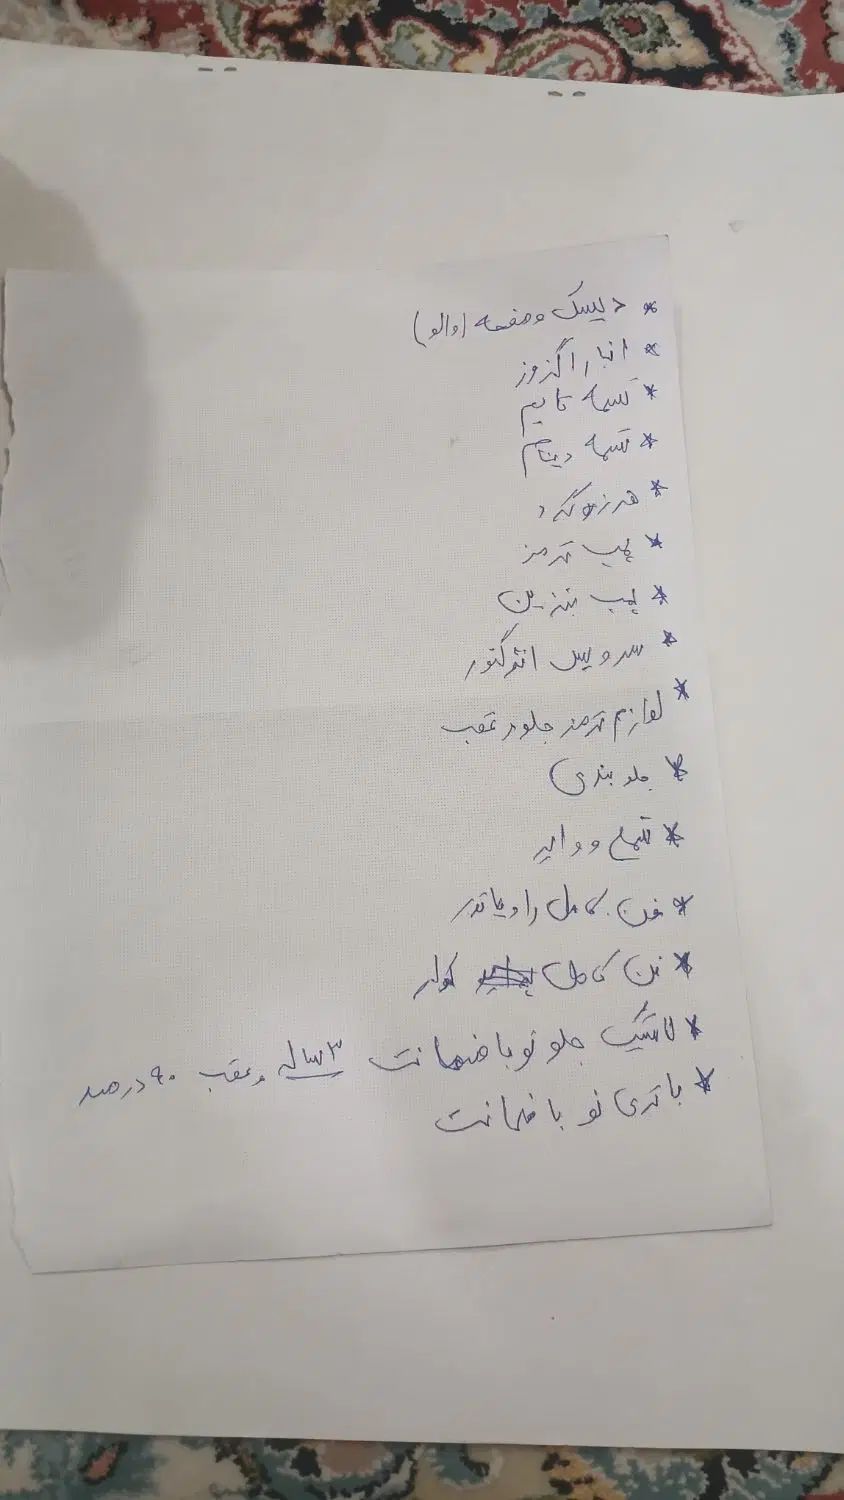 * دیسک و صفحه (والو)
* انبار اگزوز
* تسمه تایم
* تسمه دینام
* هرزگرد
* پمپ ترمز
* پمپ بنزین
* سرویس انژکتور
* لوازم ترمز جلو و عقب
* جلوبندی
* شمع و وایر
* فن کامل رادیاتور
* فن کامل کولر
* لاستیک جلو نو با ضمانت ۳ ساله و عقب ۹۰ درصد
* باتری نو با ضمانت